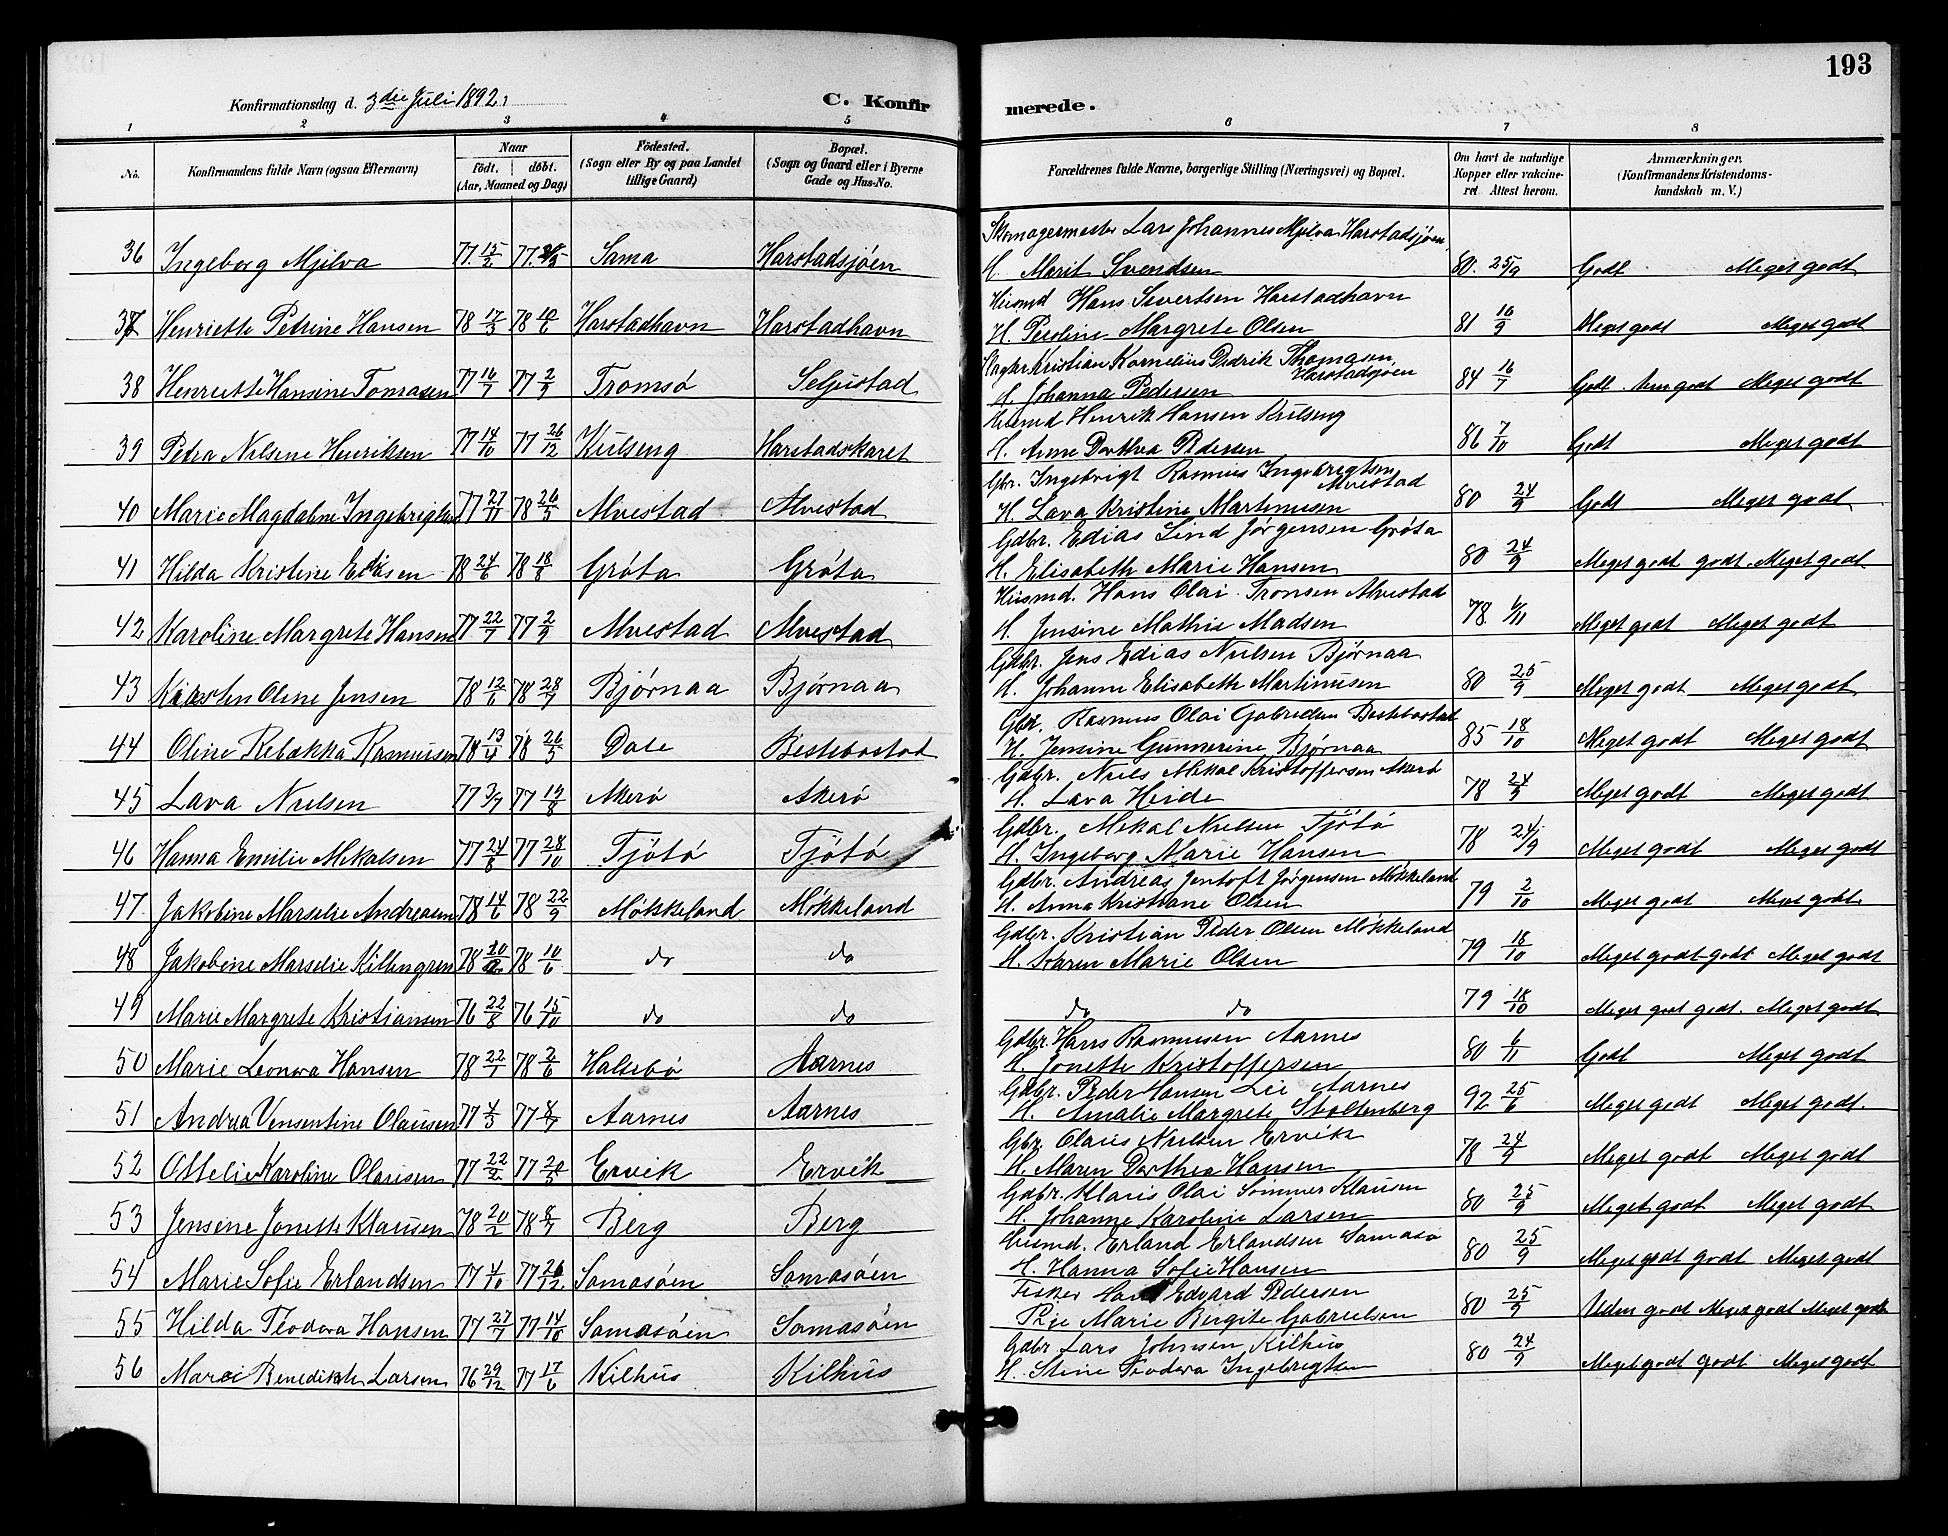 193
Konfirmationsdag d. 3die Juli 1892.
C. Konfirmerede.
1 2 3 4 5 6 7 8
No. Konfirmandens fulde Navn (ogsaa Efternavn) Naar födt. döbt. (Aar, Maaned og Dag) Födested. (Sogn eller By og paa Landet tillige Gaard) Bopæl. (Sogn og Gaard eller i Byerne Gade og Hus-No. Forældrenes fulde Navne, borgerlige Stilling (Næringsvei) og Bopæl. Om havt de naturlige Kopper eller vakcineret. Attest herom. Anmærkninger. (Konfirmandens Kristendomskundskab m. V.)
Skomagermester Lars Johannes Mjelva Harstadsjøen
36 Ingeborg Mjelva 77 15/2 77 Sama Harstadsjöen H. Marit Svendsen 80. 25/9 Godt Meget godt
Husmd Hans Sivertsen Harstadhavn
37 Henriette Petrine Hansen 78 17/3 78 10/6 Harstadhavn Harstadhavn H. Peroline Margrete Olsen 81 16/9 Meget godt Meget godt
Kristian Kornelius Didrik Thomasen Harstadsjøen
38 Henriette Hansine Tomasen 77 16/7 77 2/9 Tromsö Seljestad H. Johanna Pedersen 84 16/7 Godt Meget godt
Husmd Henrik Hansen Kulseng
39 Petra Nilsine Henriksen 77 14/10 77 26/12 Kulseng Harstadskaret H. Anne Dorthea Pedersen 86 7/10 Godt Meget godt
Gbr. Ingebrigt Rasmus Ingebrigtsen Alvestad
40 Marie Magdalene Ingebrigtsen 77 27/11 78 26/5 Alvestad Alvestad H. Lava Kristine Martinusen 80 24/9 Godt Meget godt
Gdbr. Edias Lind Jörgensen Gröta
41 Hilda Kristine 78 24/6 78 18/8 Gröta Gröta H. Elisabeth Marie Hansen 80 24/9 Meget godt godt. Meget godt
Husmd. Hans Olai Tronsen Alvestad
42 Karoline Margrete Hansen 77 22/7 77 2/9 Alvestad Alvestad H. Jensine Mathie Madsen 78 6/11 Meget godt Meget godt
Gdbr. Jens Edias Nielsen Bjørnaa
43 Kirsten Oline Jensen 78 12/6 78 28/7 Bjørnaa Bjørnaa H. Johanne Elisabeth Martinusen 80 25/9 Meget godt Meget godt
Gbr. Rasmus Olai Gabrielsen Bestebostad
44 Oline Rebækka Rasmusen 78 13/4 78 26/5 Dale Bestebostad H. Jensine Gunnerine Bjørnaa 85 18/10 Meget godt Meget godt
Gdbr. Niels Mikal Kristoffersen Akerö
45 Lava Nielsen 77 3/7 77 19/8 Akerö Akerö H. Lava Heide 78 24/9 Meget godt Meget godt
Gdbr. Mikal Nielsen Tjötö
46 Hanna Emilie Mikalsen 77 24/8 77 28/10 Tjötö Tjötö H. Ingeborg Marie Hansen 78 24/9 Meget godt Meget godt
Gdbr. Andreas Jentoft Jörgensen Mökkeland
47. Jakobine Marselie Andreasen 78 14/6 78 22/9 Mökkeland Mökkeland H. Anna Kristiane Olsen 79 2/10 Meget godt Meget godt.
Gdbr. Kristian Peder Olsen Mökkeland
48 Jakobine Marselie Killengren 78 78 10/6 do do H. Karen Marie Olsen 79 18/10 Meget godt godt Meget godt
49 Marie Margrete Kristiansen 76 22/8 76 15/10 do do do do 79 18/10 Meget godt godt. Meget godt
Gdbr. Hans Rasmusen Aarnes
50 Marie Leonora Hansen 78 22/1 78 2/6 Halsebö Aarnes H. Jonette Kristoffersen 80 6/11 Godt Meget godt
Gdbr. Peder Hansen Lie Aarnes
51 Andrea Vensentine Olausen 77 4/3 77 Aarnes Aarnes H. Amalie Margrete Stoltenberg 92 25/6 Meget godt Meget godt.
Gbr. Olaus Nielsen Ervik
52 Ottelie Karoline Olausen 77 22/2 77 20/5 Ervik Ervik H. Maren Dorthea Hansen 78 24/9 Meget godt Meget godt
Gdbr. Klaus Olai Sommer Klausen
53 Jensine Jonette Klausen 78 20/2 78 8/7 Berg Berg H. Johanne Karoline Larsen 80 25/9 Meget godt Meget godt
Husmd. Erland Erlandsen Samasö
54 Marie Sofie Erlandsen 77 4/10 77 26/12 Samasöen Samasöen H. Hanna Sofie Hansen 80 25/9 Meget godt godt Meget godt
Fisker Edvard Pedersen
55 Hilda Teodora Hansen 77 27/7 77 14/10 Samasöen Samasöen Pige Marie Birgite Gabrielsen 80 25/9 Uden godt Meget godt Meget godt
Gdbr Lars Johnsen Kilhus
56 Benedikte Larsen 76 29/12 77 17/6 Kilhus Kilhus H. Stine Teodora Ingebrigtsen 80 24/9 Meget godt godt Meget godt